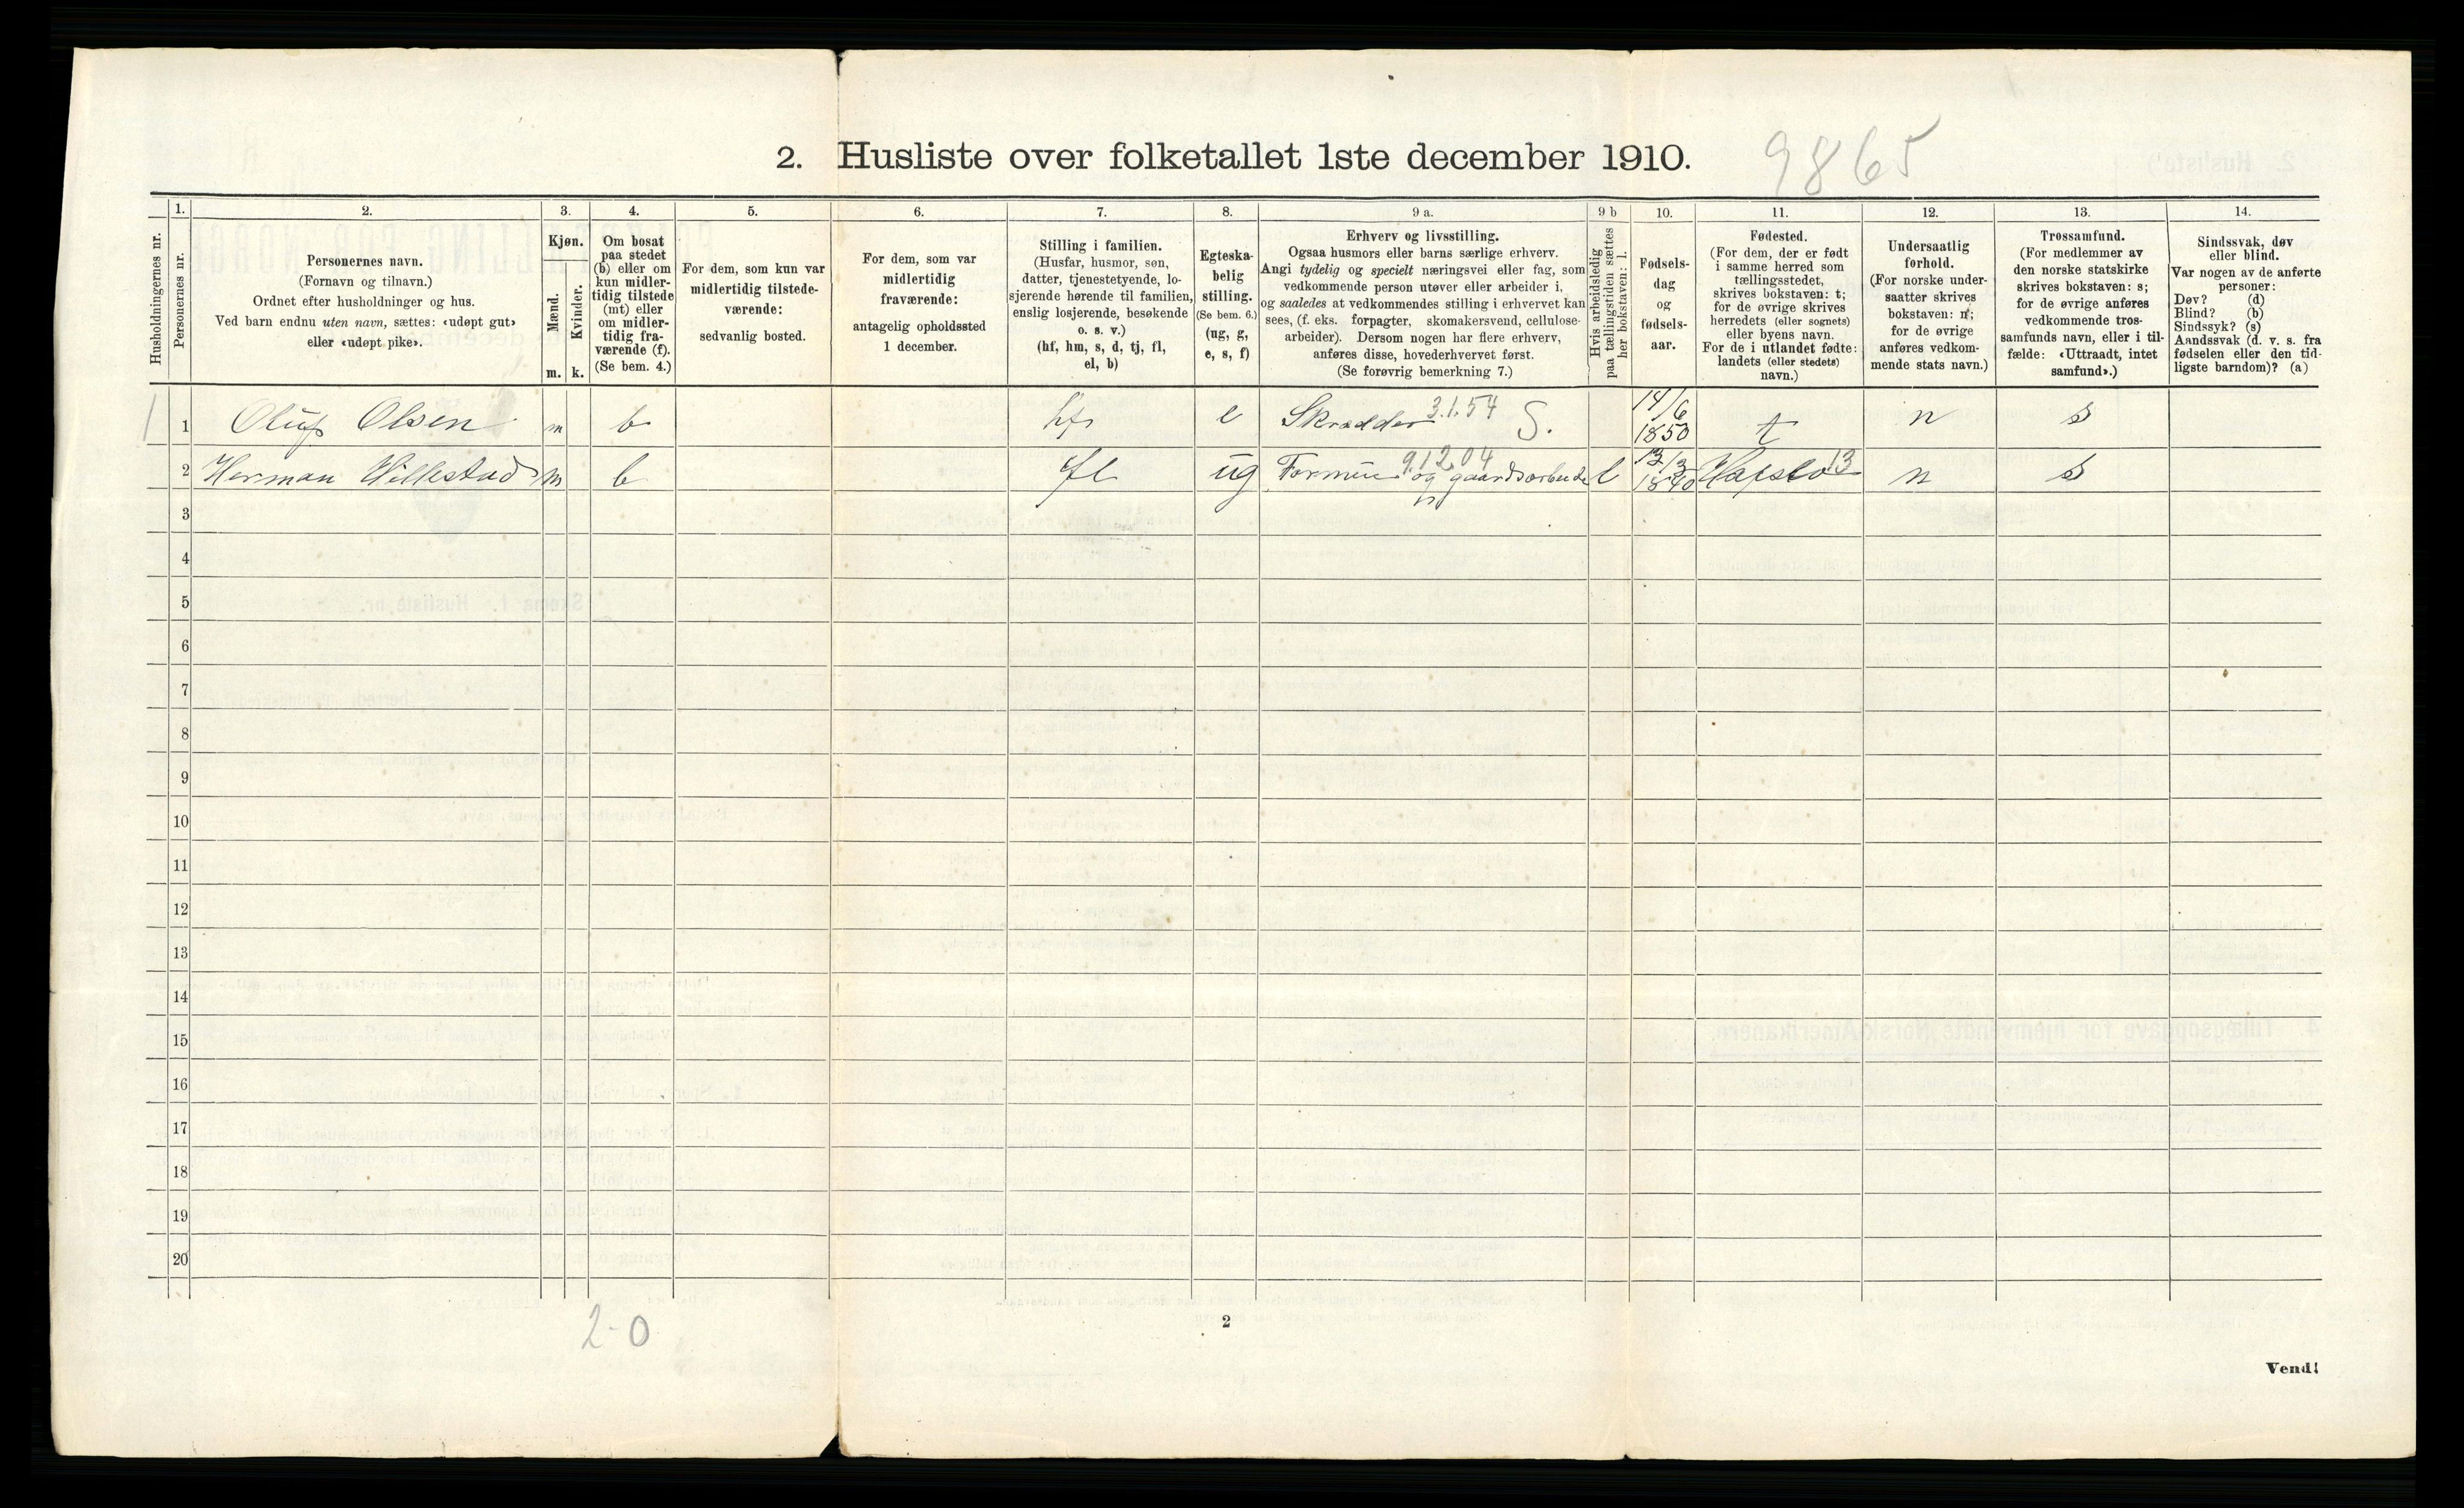 2. Husliste over folketallet 1ste december 1910.
9865
Husholdningernes nr.
1.
Personernes nr.
2.
Personernes navn.
(Fornavn og tilnavn.)
Ordnet efter husholdninger og hus.
Ved barn endnu uten navn, sættes: «udøpt gut»
eller «udøpt pike».
3.
Kjøn.
Mænd.
Kvinder.
m. k.
4.
Om bosat
paa stedet
(b) eller om
kun midler-
tidig tilstede
(mt) eller
om midler-
tidig fra-
værende (f).
(Se bem. 4.)
5.
For dem, som kun var
midlertidig tilstede-
værende:
sedvanlig bosted.
6.
For dem, som var
midlertidig
fraværende:
antagelig opholdssted
1 december.
7.
Stilling i familien.
(Husfar, husmor, søn,
datter, tjenestetyende, lo-
sjerende hørende til familien,
enslig losjerende, besøkende
o. s. v.)
(hf, hm, s, d, tj, fl,
el, b)
8.
Egteska-
belig
stilling.
(Se bem. 6.)
(ug, g,
e, s, f)
9 a.
Erhverv og livsstilling.
Ogsaa husmors eller barns særlige erhverv.
Angi tydelig og specielt næringsvei eller fag, som
vedkommende person utøver eller arbeider i,
og saaledes at vedkommendes stilling i erhvervet kan
sees, (f. eks. forpagter, skomakersvend, cellulose-
arbeider). Dersom nogen har flere erhverv,
anføres disse, hovederhvervet først.
(Se forøvrig bemerkning 7.)
9 b
Hvis arbeidsledig
paa tællingstiden sættes
her bokstaven: l.
10.
Fødsels-
dag
og
fødsels-
aar.
11.
Fødested.
(For dem, der er født
i samme herred som
tællingsstedet,
skrives bokstaven: t;
for de øvrige skrives
herredets (eller sognets)
eller byens navn.
For de i utlandet fødte:
landets (eller stedets)
navn.)
12.
Undersaatlig
forhold.
(For norske under-
saatter skrives
bokstaven: n;
for de øvrige
anføres vedkom-
mende stats navn.)
13.
Trossamfund.
(For medlemmer av
den norske statskirke
skrives bokstaven: s;
for de øvrige anføres
vedkommende tros-
samfunds navn, eller i til-
fælde: «Uttraadt, intet
samfund».)
14.
Sindssvak, døv
eller blind.
Var nogen av de anførte
personer:
Døv? (d)
Blind? (b)
Sindssyk? (s)
Aandssvak (d. v. s. fra
fødselen eller den tid-
ligste barndom)? (a)
1 1 Oluf Olsen m b hf e Skrædder 3.1.54 S. 14/6 1850 t n s
2 Herman m b fl ug og gaardsarbeider 9.12.04 l Hafslo 13 n s
3
4
5
6
7
8
9
10
11
12
13
14
15
16
17
18
19
20
2-0
2
Vend!